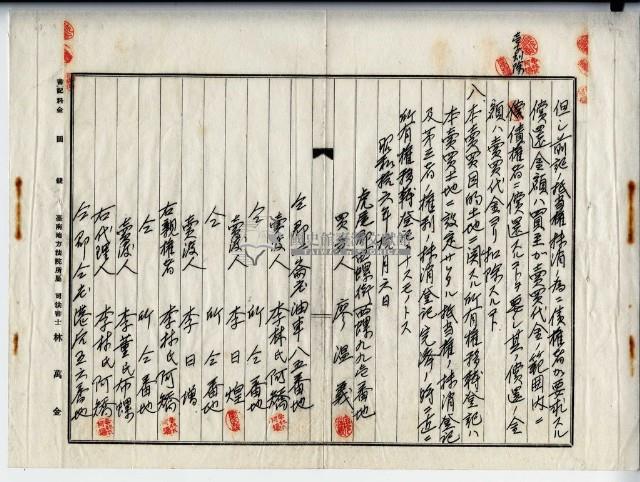 但シ前記ノ抵当権抹消ノ為ニ債権者カ要求スル
償還金額ハ買主カ賣買代金ノ範囲内ニ
債権者ニ償還スルコトヲ要シ其ノ償還ノ金
額ハ賣買代金ヨリ扣除スルコト
八、本賣買目的土地ニ関スル所有権移轉登記ハ
本賣買土地ニ設定サレタル抵当権ノ抹消登記
及第三者ノ権利ノ抹消登記完済ノ時ニ迠ニ
所有権移轉登記ヲナスモノトス
昭和拾六年 月六日
虎尾郡西螺街西螺九九七番地
買受人 廖温義
仝郡崙背庄油車八五番地
賣渡人 李林氏阿矯
仝 所仝番地
賣渡人 李日煌
仝 所仝番地
賣渡人 李日增
右親権者 李林氏阿矯
仝 所仝番地
賣渡人 李董氏市螺
右代理人 李林氏阿矯
仝郡仝庄
書記料金 圓 錢
臺南地方法院所屬 司法書士 林萬金